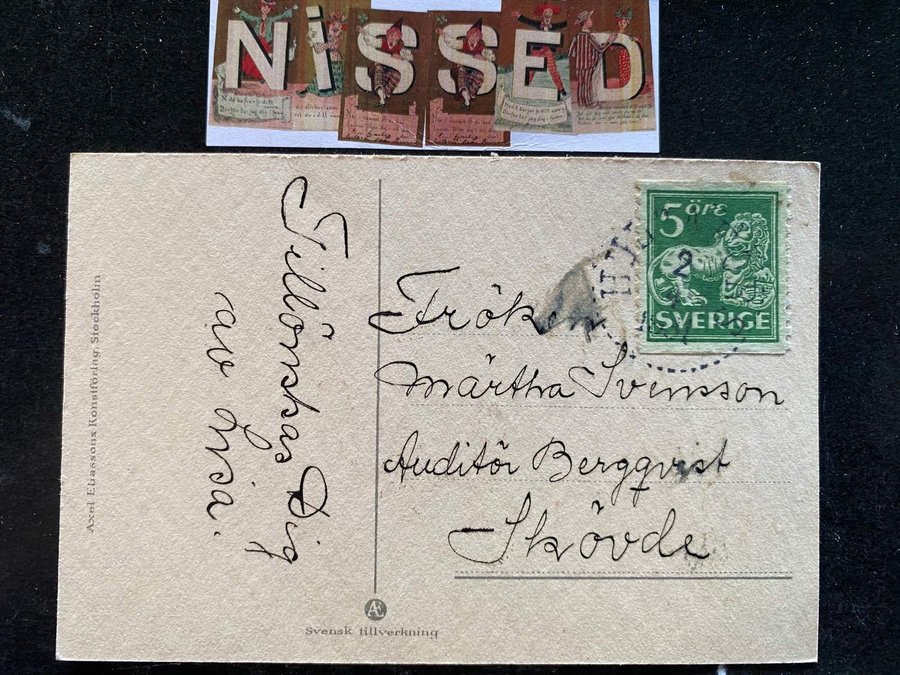 NiSSED
Tillönskas Dig
av Lisa.
Fröken
Märtha Svensson
Auditör Bergqvist
Skövde
5 öre
SVERIGE
2
Axel Eliassons Konstförlag, Stockholm
Æ
Svensk tillverkning